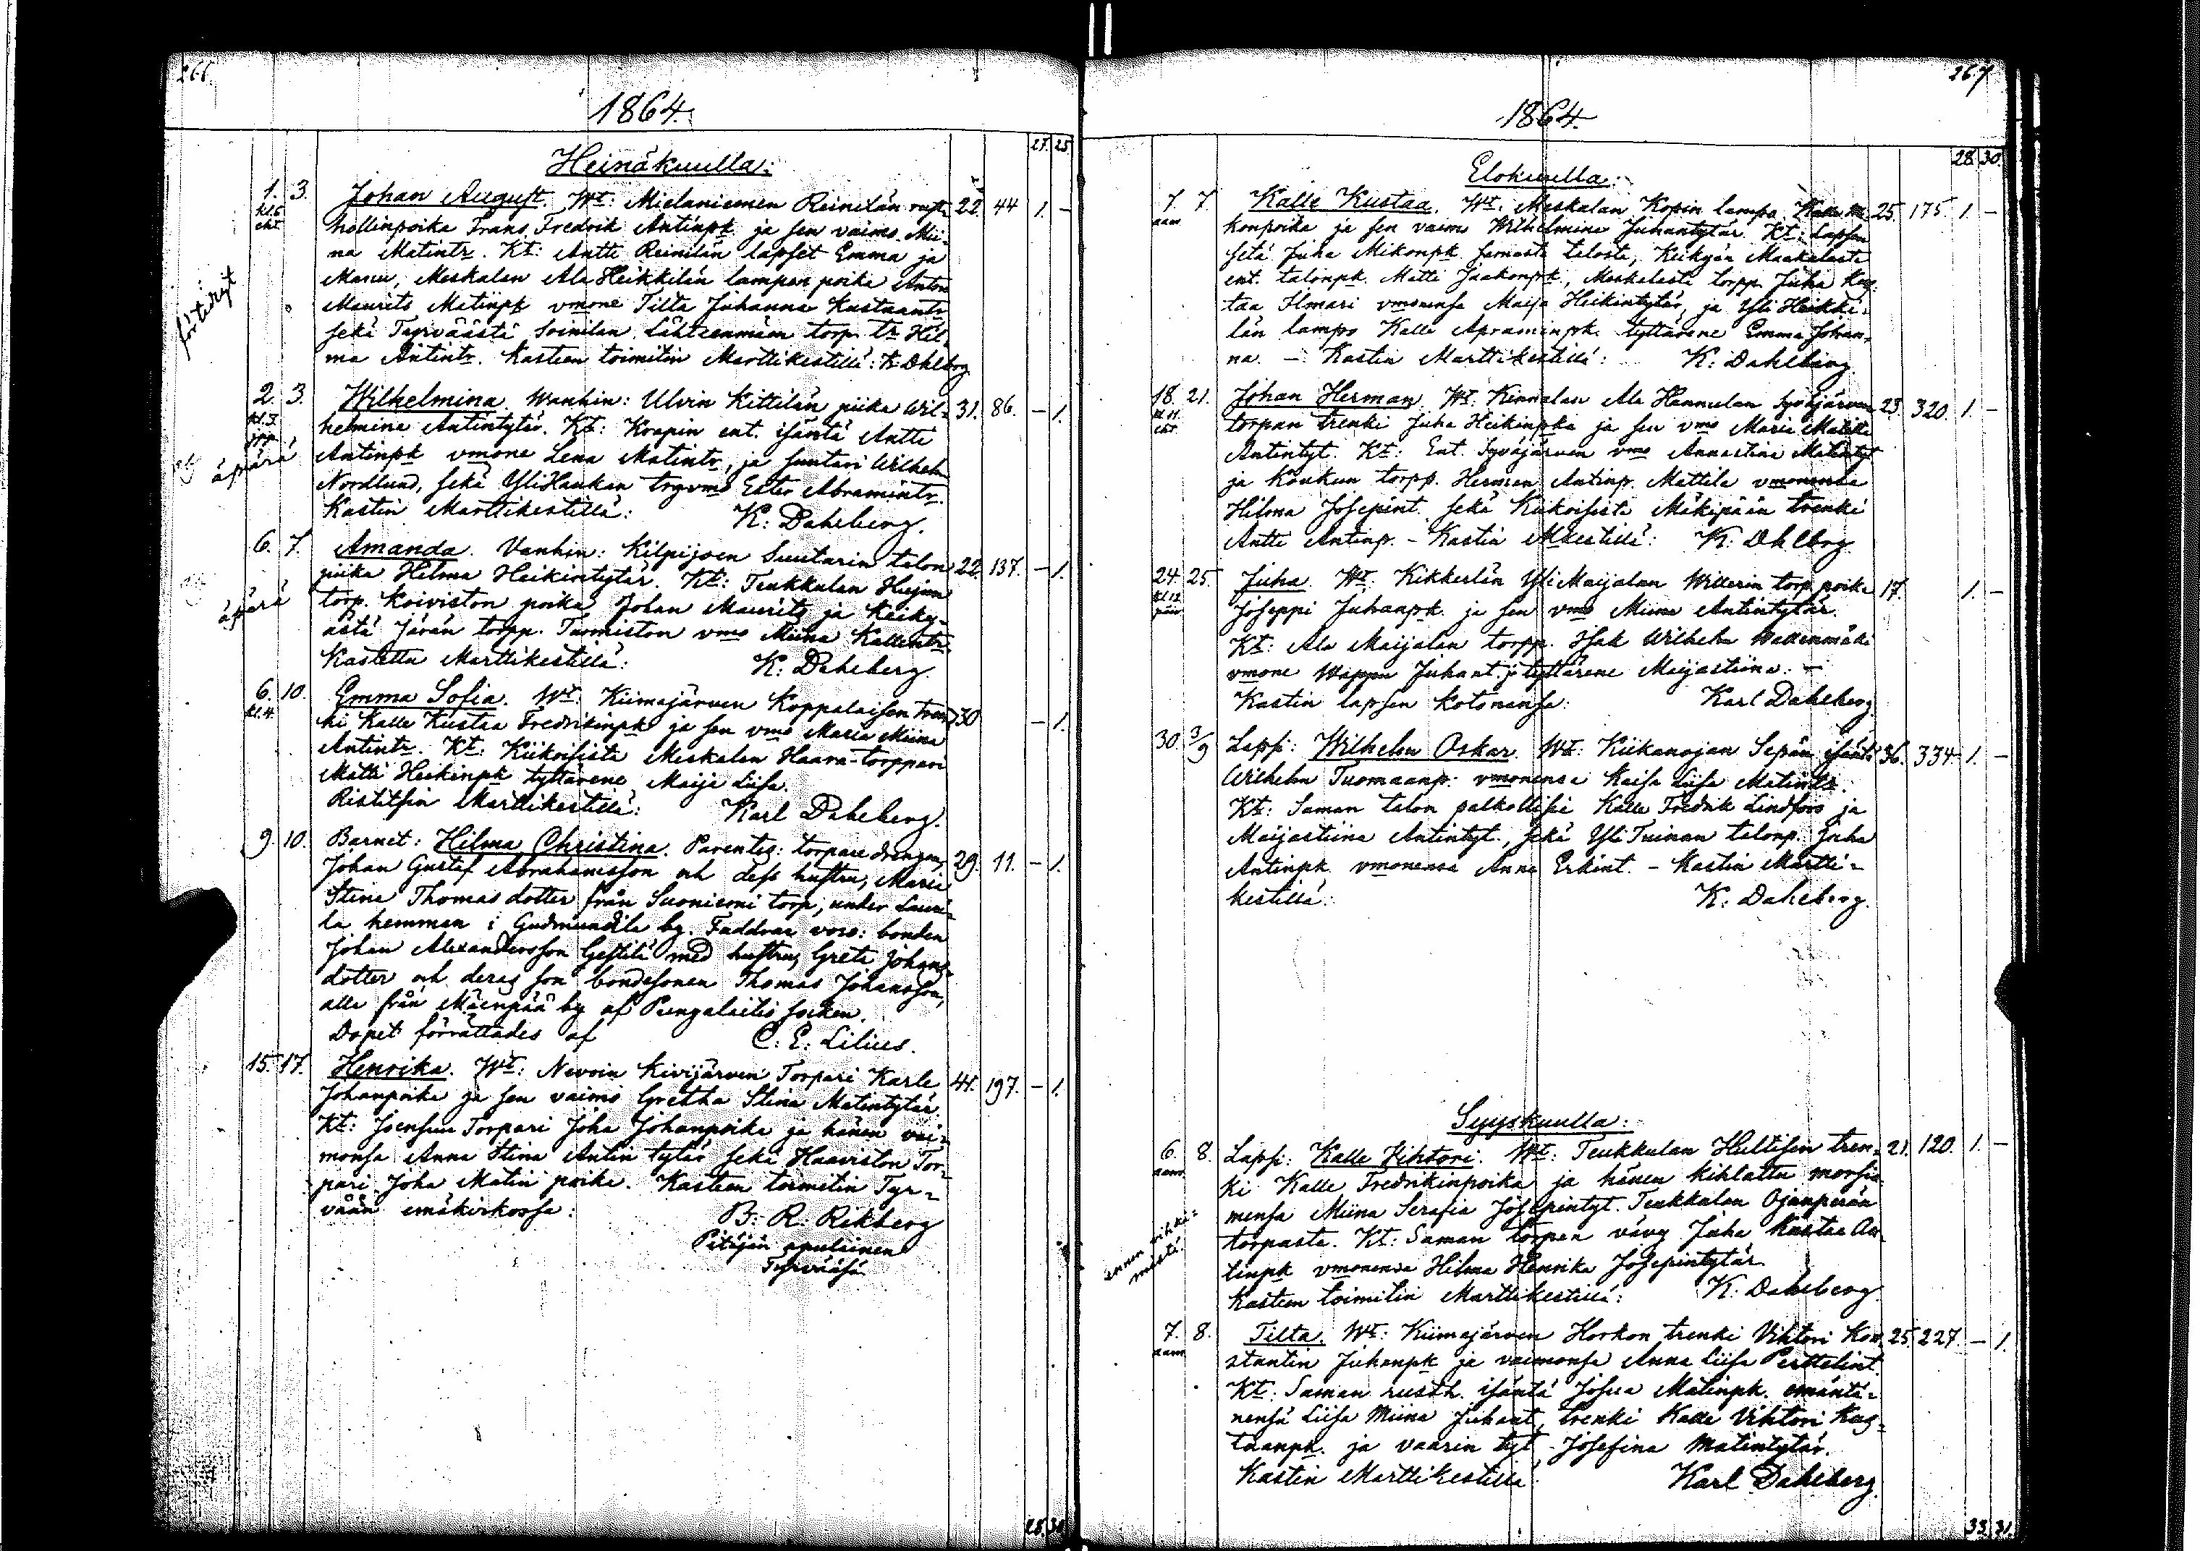 266.
1864.
27. 25.
Heinäkuulla:
1. 3. Johan August. Wt: Mielanicmen Reinilän rust- 22. 44 1. –
kl.6 hollinpoika Frans Fredrik Antinpk ja sen vaimo Mii-
eht. na Matintr. Kt: Antti Reinilän lapset Emma ja
Manu, Meskalan Ala Heikkilän lampon poika Anton
Maurits Matinpk vmone Tilta Juhanna Kustaantr
sekä Tyrväästä Soinilan torp. tr Hil-
ma Antintr. Kasteen toimitin Marttikestillä: K. Dahlberg
2. 3. Wilhelmina. Wanhin: Ulvin Kittilän piika Wil- 31. 86. – 1.
helmina Antintytär. Kt: Krapin ent. isäntä Antti
Antinpk vmone Lena Matintr, ja suutari Wilhelm
äpärä
Nordlund, sekä YliHaukan trp vmo Ester Abramintr.
Kastin Marttikestillä: K. Dahlberg.
6. 7. Amanda. Vanhin: Kilpijoen Suutarin talon 22. 137. – 1.
piika Hilma Heikintytär. Kt: Teukkulan Hiejan
äpärä
torp. Koiviston poika Johan Maurits ja Keiky-
ästä Järän torpp. Tuomiston vmo Miina Kallentr.
Kastettu Marttikestillä: K. Dahlberg.
6. 10. Emma Sofia. Wt: Kiimajärven Koppalaisen tren- 30 – 1.
kl.4. ki Kalle Kustaa Fredrikinpk ja sen vmo Maria Miina
Antintr. Kt: Kiikoisista Meskalan Haara-torppari
Matti Heikinpk tyttärene Maija Liisa.
Ristitsin Marttikestillä: Karl Dahlberg.
9. 10. Barnet: Hilma Christina. Parentes: torpare drengen 29. 11. – 1.
Johan Gustaf Abrahamsson och dess hustru, Maria
Stina Thomas dotter från Suoniemi torp, under Lauri-
la hemman i Gudmundila by. Faddrar voro: bonden
Johan Alexandersson Gestili med hustru Greta Johans-
dotter och deras son bondesonen Thomas Johansson,
alla från Mäenpää by af Pungalaitio socken.
Dopet förrättades af C. E. Lilius.
15. 17. Henrika. Wt: Nevoin Kivijärven Torpari Karle 41. 197. – 1.
Johanpoika ja sen vaimo Gretha Stina Matintytär.
Kt: Joensuun Torpari Joha Johanpoika ja hänen vai-
monsa Anna Stina Antin tytär sekä Haaviston Tor-
pari Joha Matin poika. Kasteen toimitin Tyr-
vään emäkirkossa: B. R. Rikberg
Pitäjän apulainen
Tyrväässä
28. 30.
267
1864.
28. 30.
Elokuulla:
7. 7. Kalle Kustaa. Wt: Meskalan Kopin lampo Kalle Mi- 25. 175. 1. –
aam. konpoika ja sen vaimo Wilhelmina Juhantytär. Kt: Lapsen
setä Juha Mikonpk samasta talosta, Keikyän Maakalasta
ent. talonpk. Matti Jaakonpk, Meskalasta torpp. Juha Kus-
taa Ilmari vmonensa Maija Heikintytär, ja Yli Heikki-
län lampo Kalle Apraminpk. tyttärene Emma Johan-
na. – Kastin Marttikestillä: K. Dahlberg
18. 21. Johan Herman. Wt: Kinnalan Ala Hannulan Syväjärven 23. 320. 1. –
kl.11. eht. torpan trenki Juha Heikinpka ja sen vmo Maria Matilda
Antintyt. Kt: Ent. Syväjärven vmo Annastina Matintyt
ja Koukun torpp. Herman Antinp. Mattila vmonensa
Hilma Josepint. sekä Kiikoisista Mäkipään trenki
Antti Antinp. – Kastin Mkestillä: K. Dhlbrg.
24. 25. Juha. Wt: Kikkerlän YliMaijalan Willerin torp. poika 17. 1. –
kl.12. Joseppi Juhanpk. ja sen vmo Miina Antintytär.
Kt: Ala Maijalan torpp. Isak Wilhelm Wallenmäki
vmone Wappu Juhant. ja tyttärene Maijastiina. –
Kastin lapsen kotonansa: Karl Dahlberg
30. 3/9 Lapsi: Wilhelm Oskar. Wt: Kiikanojan Sepän isäntä 36. 334 1. –
Wilhelm Tuomaanp. vmonensa Kaisa Liisa Matintr.
Kt: Saman talon palkollisia Kalle Fredrik Lindfors ja
Maijastiina Antintyt., sekä Yli Tuinan talonp. Juha
Antinpk vmonensa Anna Erkint. – Kastin Martti-
kestillä: K. Dahlberg.
Syyskuulla:
6. 8. Lapsi: Kalle Vihtori. Wt: Teukkulan Hultisin tren- 21. 120. 1. –
aam. ki Kalle Fredrikinpoika ja hänen kihlattu morsia-
mensa Miina Serafia Josepintyt. Teukkulan Ojanperän
ennen vihki-
mistä.
torpasta. Kt: Saman torpan vävy Juha Kustaa An-
tinpk vmonensa Hilma Henrika Josepintytär.
Kasteen toimitin Marttikestillä: K. Dahlberg.
7. 8. Tilta. Wt: Kiimajärven Horkon trenki Vihtori Kon- 25. 227. – 1.
aam. stantin Juhanpk ja vaimonsa Anna Liisa Perttelint.
Kt: Saman rusth. isäntä Josua Matinpk. emäntä-
nensä Liisa Miina Juhant, trenki Kalle Vihtori Kus-
taanpk. ja vaarin tyt. Josefina Matintytär.
Kastin Marttikestillä: Karl Dahlberg.
33. 31.